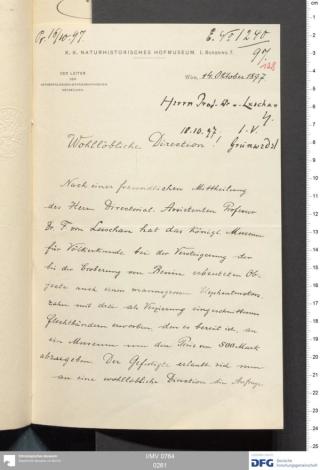 Pr. 15/10 97
E. 1240/97.
128
K. K. NATURHISTORISCHES HOFMUSEUM I. BURGRING 7.
DER LEITER
DER
ANTHROPOLOGISCH-ETHNOGRAPHISCHEN
ABTHEILUNG
WIEN, 14. Oktober 1897
Herrn Prof. Dr v. Luschan
18.10.97. I. V.
Grünwedel
Wohllöbliche Direction!
Nach einer freundlichen Mittheilung
des Herrn Directorial-Assistenten Professor
Dr. F. von Luschan hat das Königl. Museum
für Völkerkunde bei der Versteigerung der
bei der Eroberung von Benin erbeuteten Ob-
jecte auch einen Elephantenstoss-
zahn mit als Verzierung eingeschnittenen
Flechtbändern erworben, den es bereit ist, an
ein Museum um den Preis von 800 Mark
abzugeben. Der Gefertigte erlaubt sich nun
an eine wohllöbliche Direction die Anfrage
I/MV 0764
0261
Gefördert durch
DFG Deutsche
Forschungsgemeinschaft